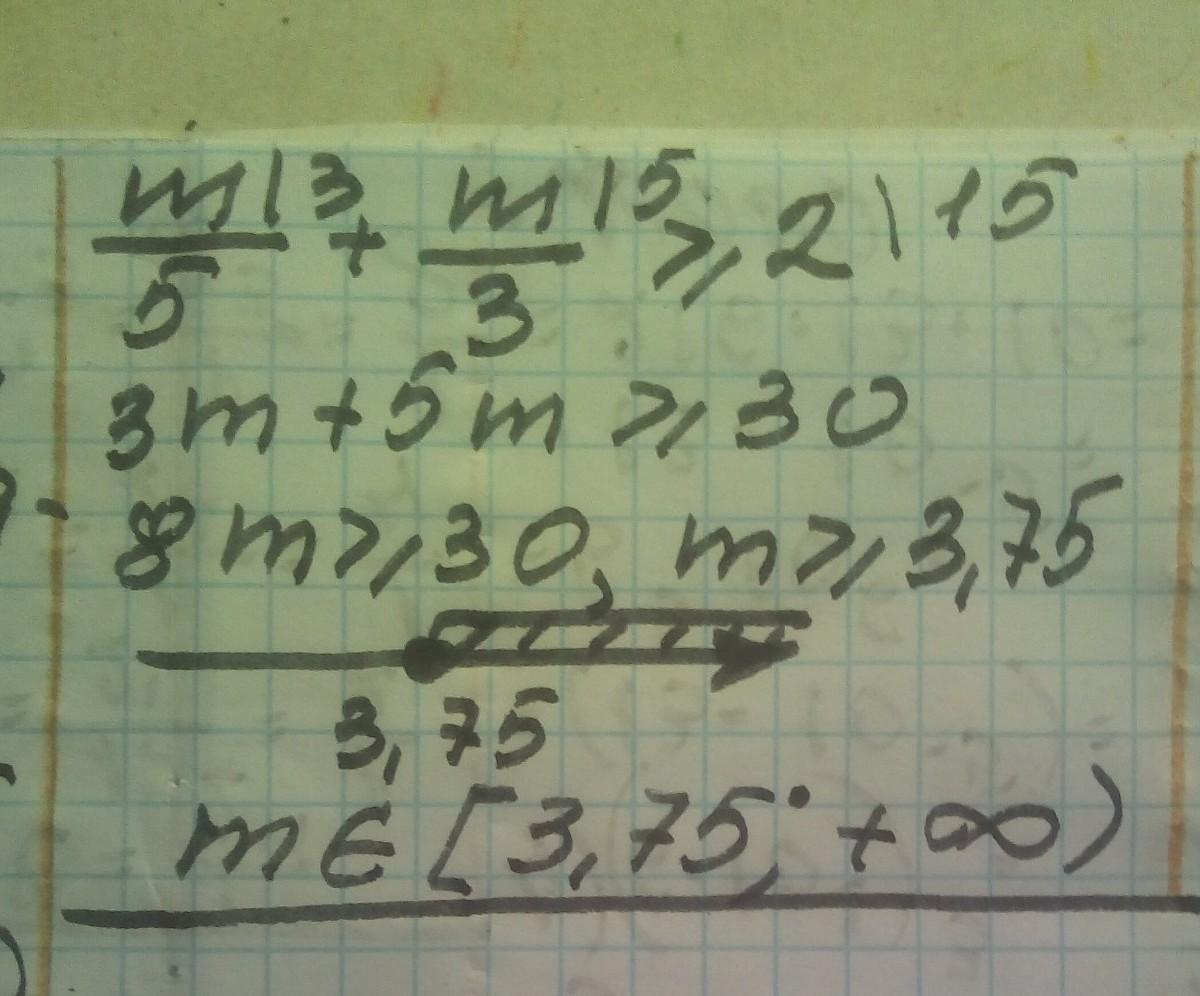 m|3 + m|5 ⩾ 2\15
5 3
3m + 5m ⩾ 30
8m ⩾ 30, m ⩾ 3,75
3,75
m ∈ [3,75; +∞)